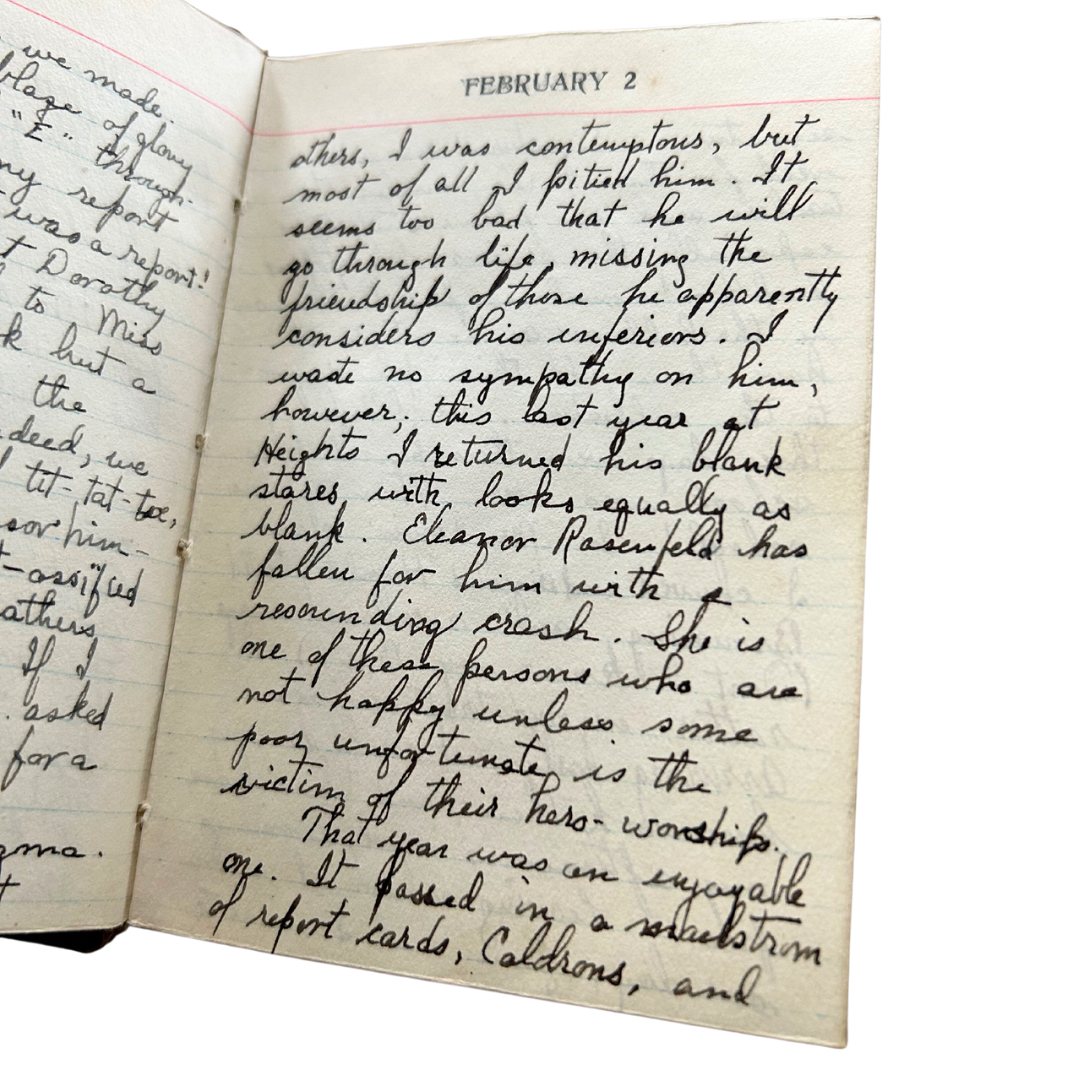 we made.
blaze of glory
"E" through.
my report
was a report!
Dorothy
to Miss
but a
the
deed, we
tit-tat-toe,
him-
ossified
If I
asked
for a
FEBRUARY 2
others, I was contemptous, but
most of all I pitied him. It
seems too bad that he will
go through life, missing the
friendship of those he apparently
considers his inferiors. I
waste no sympathy on him,
however; this last year at
Heights I returned his blank
stares with looks equally as
blank. Eleanor Rosenfeld has
fallen for him with a
resounding crash. She is
one of these persons who are
not happy unless some
poor unfortunate is the
victim of their hero-worship.
That year was an enjoyable
one. It passed in a maelstrom
of report cards, Caldrons, and